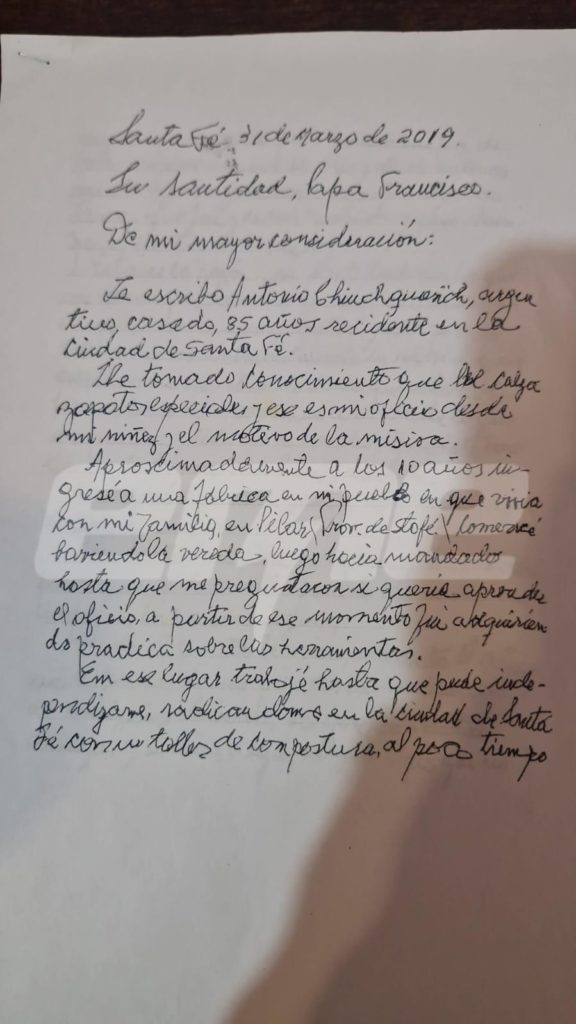 Santa Fé 31 de Marzo de 2019.
Su santidad, Papa Francisco.
De mi mayor consideración:
Le escribo Antonio, argen
tino, casado, 85 años recidente en la
Ciudad de Santa Fé.
He tomado conocimiento que Ud. calza
zapatos especiales y ese es mi oficio desde
mi niñez y el motevo de la misiva.
Aproscimadamente a los 10 años in-
gresé a una Fábrica en mi pueblo en que vivia
con mi familia, en Pilar (Prov. de Stafé) Comencé
barriendo la vereda, luego hacia mandado
hasta que me preguntaron si queria aprender
el oficio, a partir de ese momento fui adquirien
do pradica sobre las herramientas.
Em ese lugar trabajé hasta que pude inde-
pendizame, radicandome en la ciudad de Santa
Fé con un taller de compostura, al poco tiempo